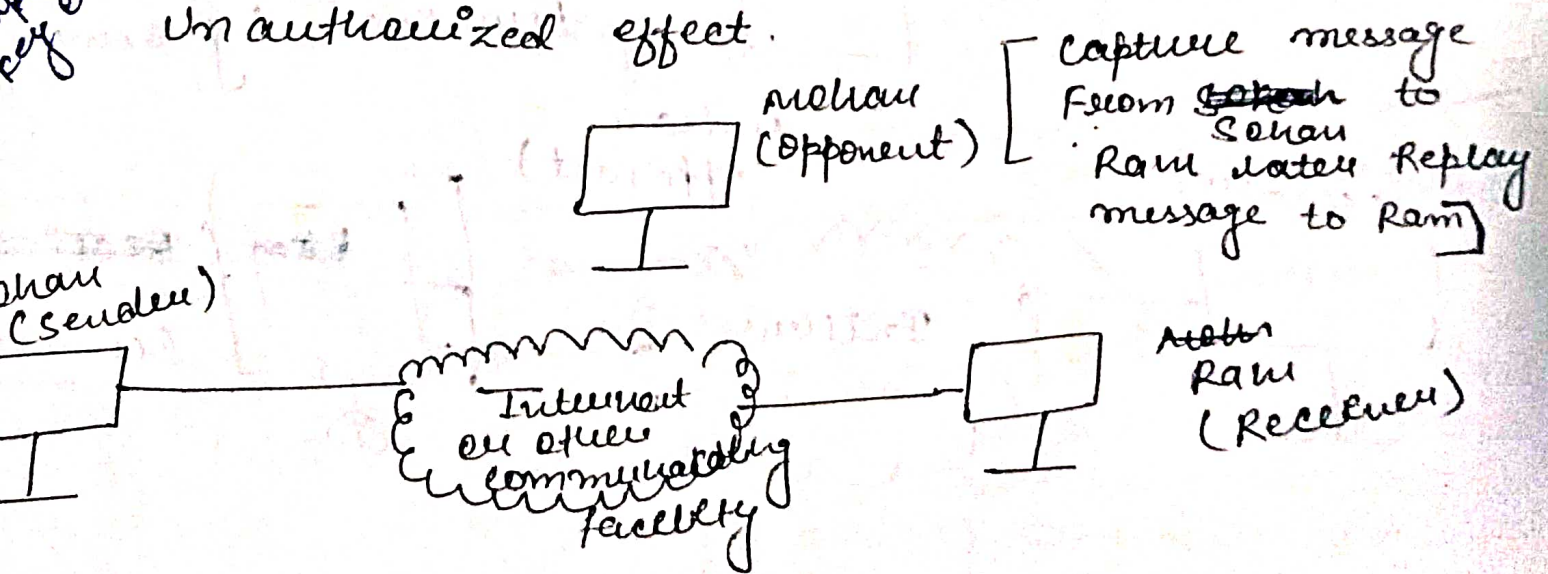 Unauthorized effect.
Mohan
(opponent)
Capture message
From Sohan to
Ram later Replay
message to Ram]
ohan
(sender)
Internet
or other
communicating
facility
Ram
(Receiver)